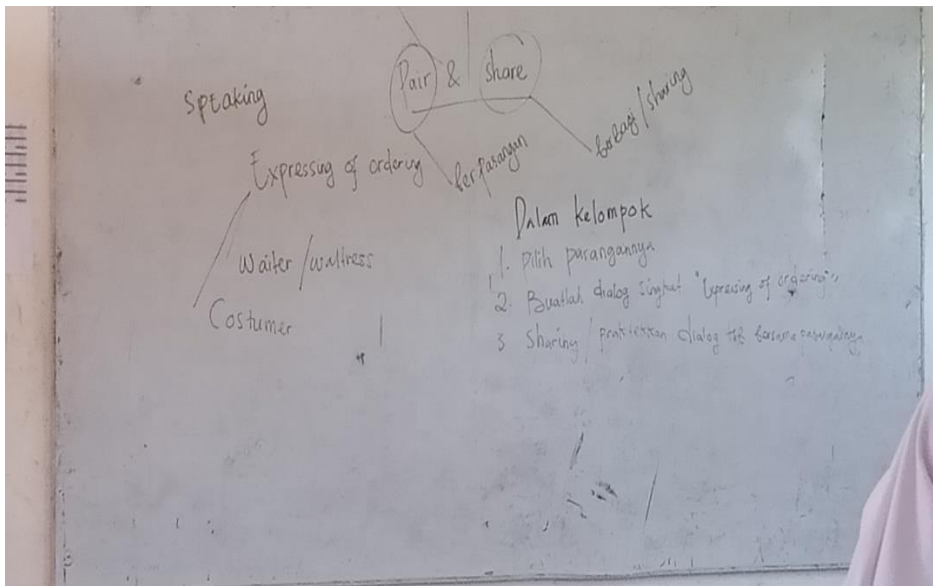 Pair & Share
Speaking
berpasangan
berbagi/sharing
Expressing of ordering
Waiter/waitress
Costumer
Dalam kelompok
1. Pilih pasangannya
2. Buatlah dialog singkat "Expressing of ordering"
3 Sharing/praktekkan dialog tsb bersama pasangannya